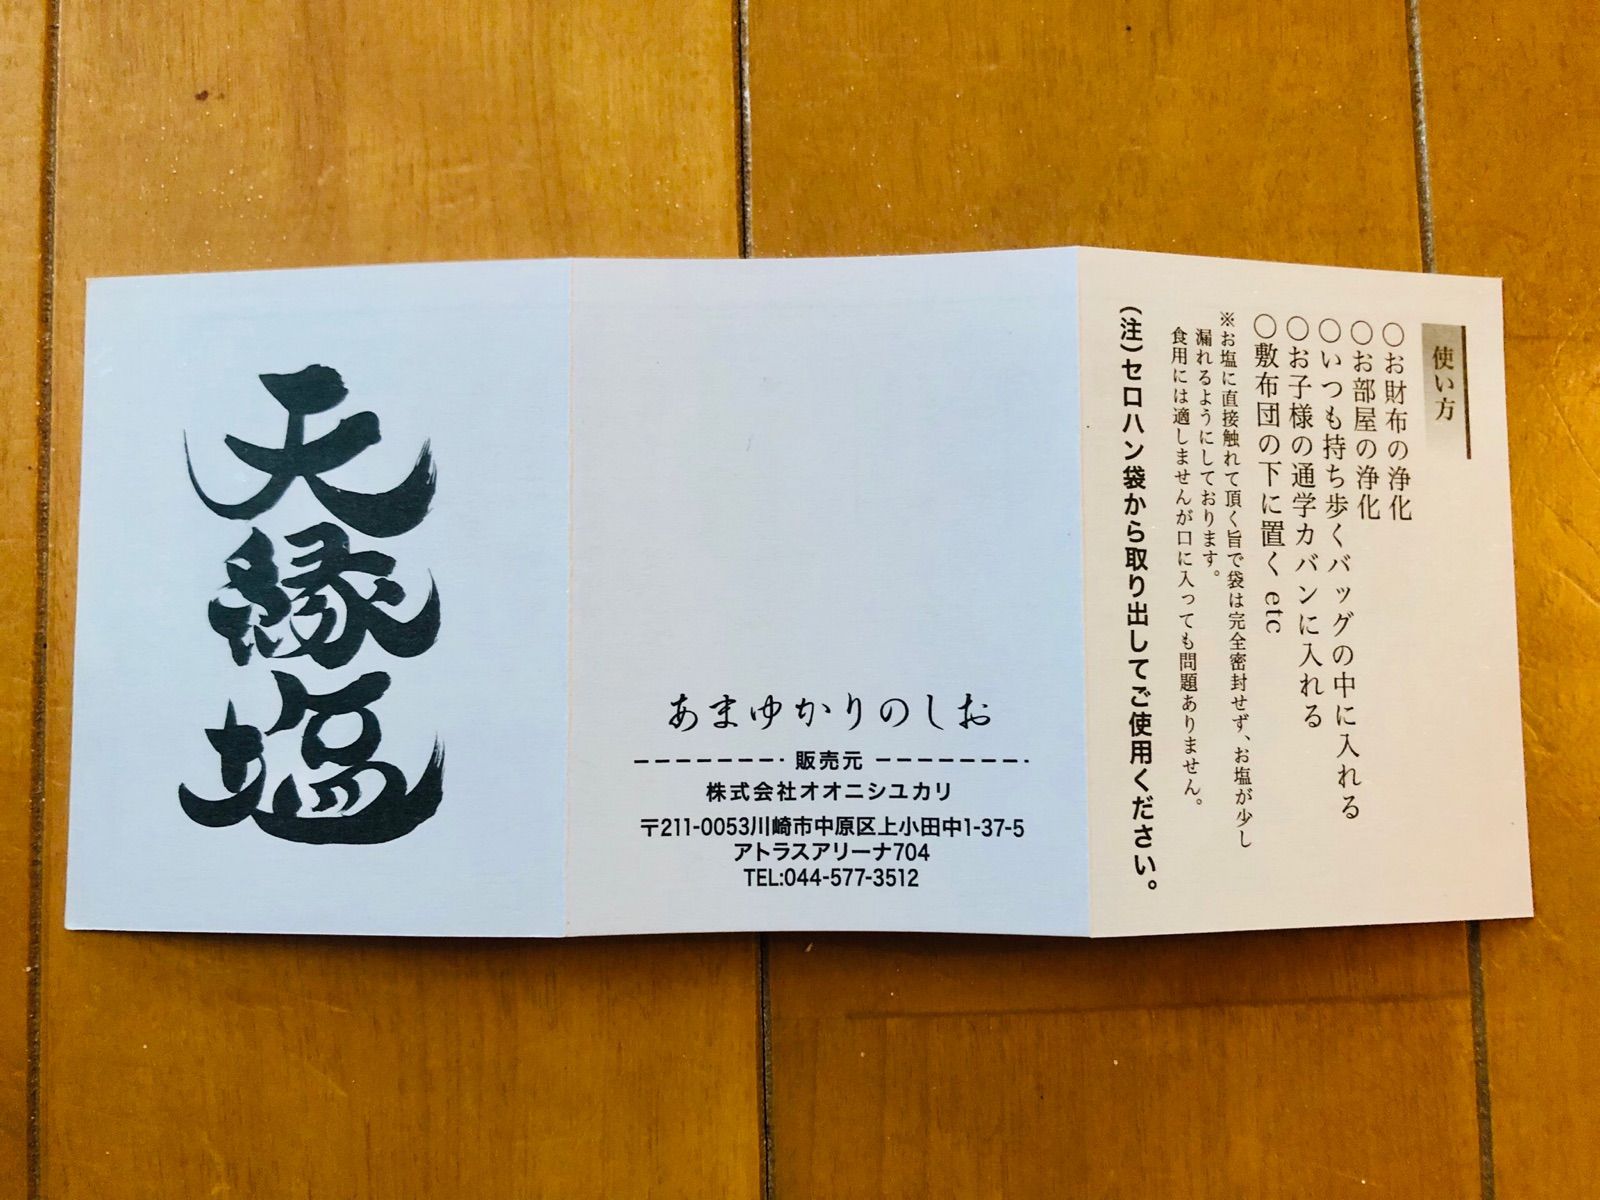 天縁塩
あまゆかりのしお
販売元
株式会社オオニシユカリ
〒211-0053川崎市中原区上小田中1-37-5
アトラスアリーナ704
TEL:044-577-3512
使い方
〇お財布の浄化
〇お部屋の浄化
〇いつも持ち歩くバッグの中に入れる
〇お子様の通学カバンに入れる
〇敷布団の下に置く etc
※お塩に直接触れて頂く旨で袋は完全密封せず、お塩が少し
漏れるようにしております。
食用には適しませんが口に入っても問題ありません。
(注)セロハン袋から取り出してご使用ください。